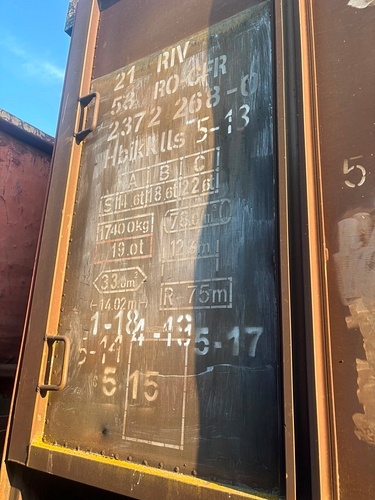 21 RIV
53 RO-CFR
2372 268-0
Hbikklls 5-13
A B C
S 14.6t 18.6t 22.6t
17400kg
19.0t
33.0m²
14.02m
R-75m
1-18 4-43 5-17
5-14
5 15
5